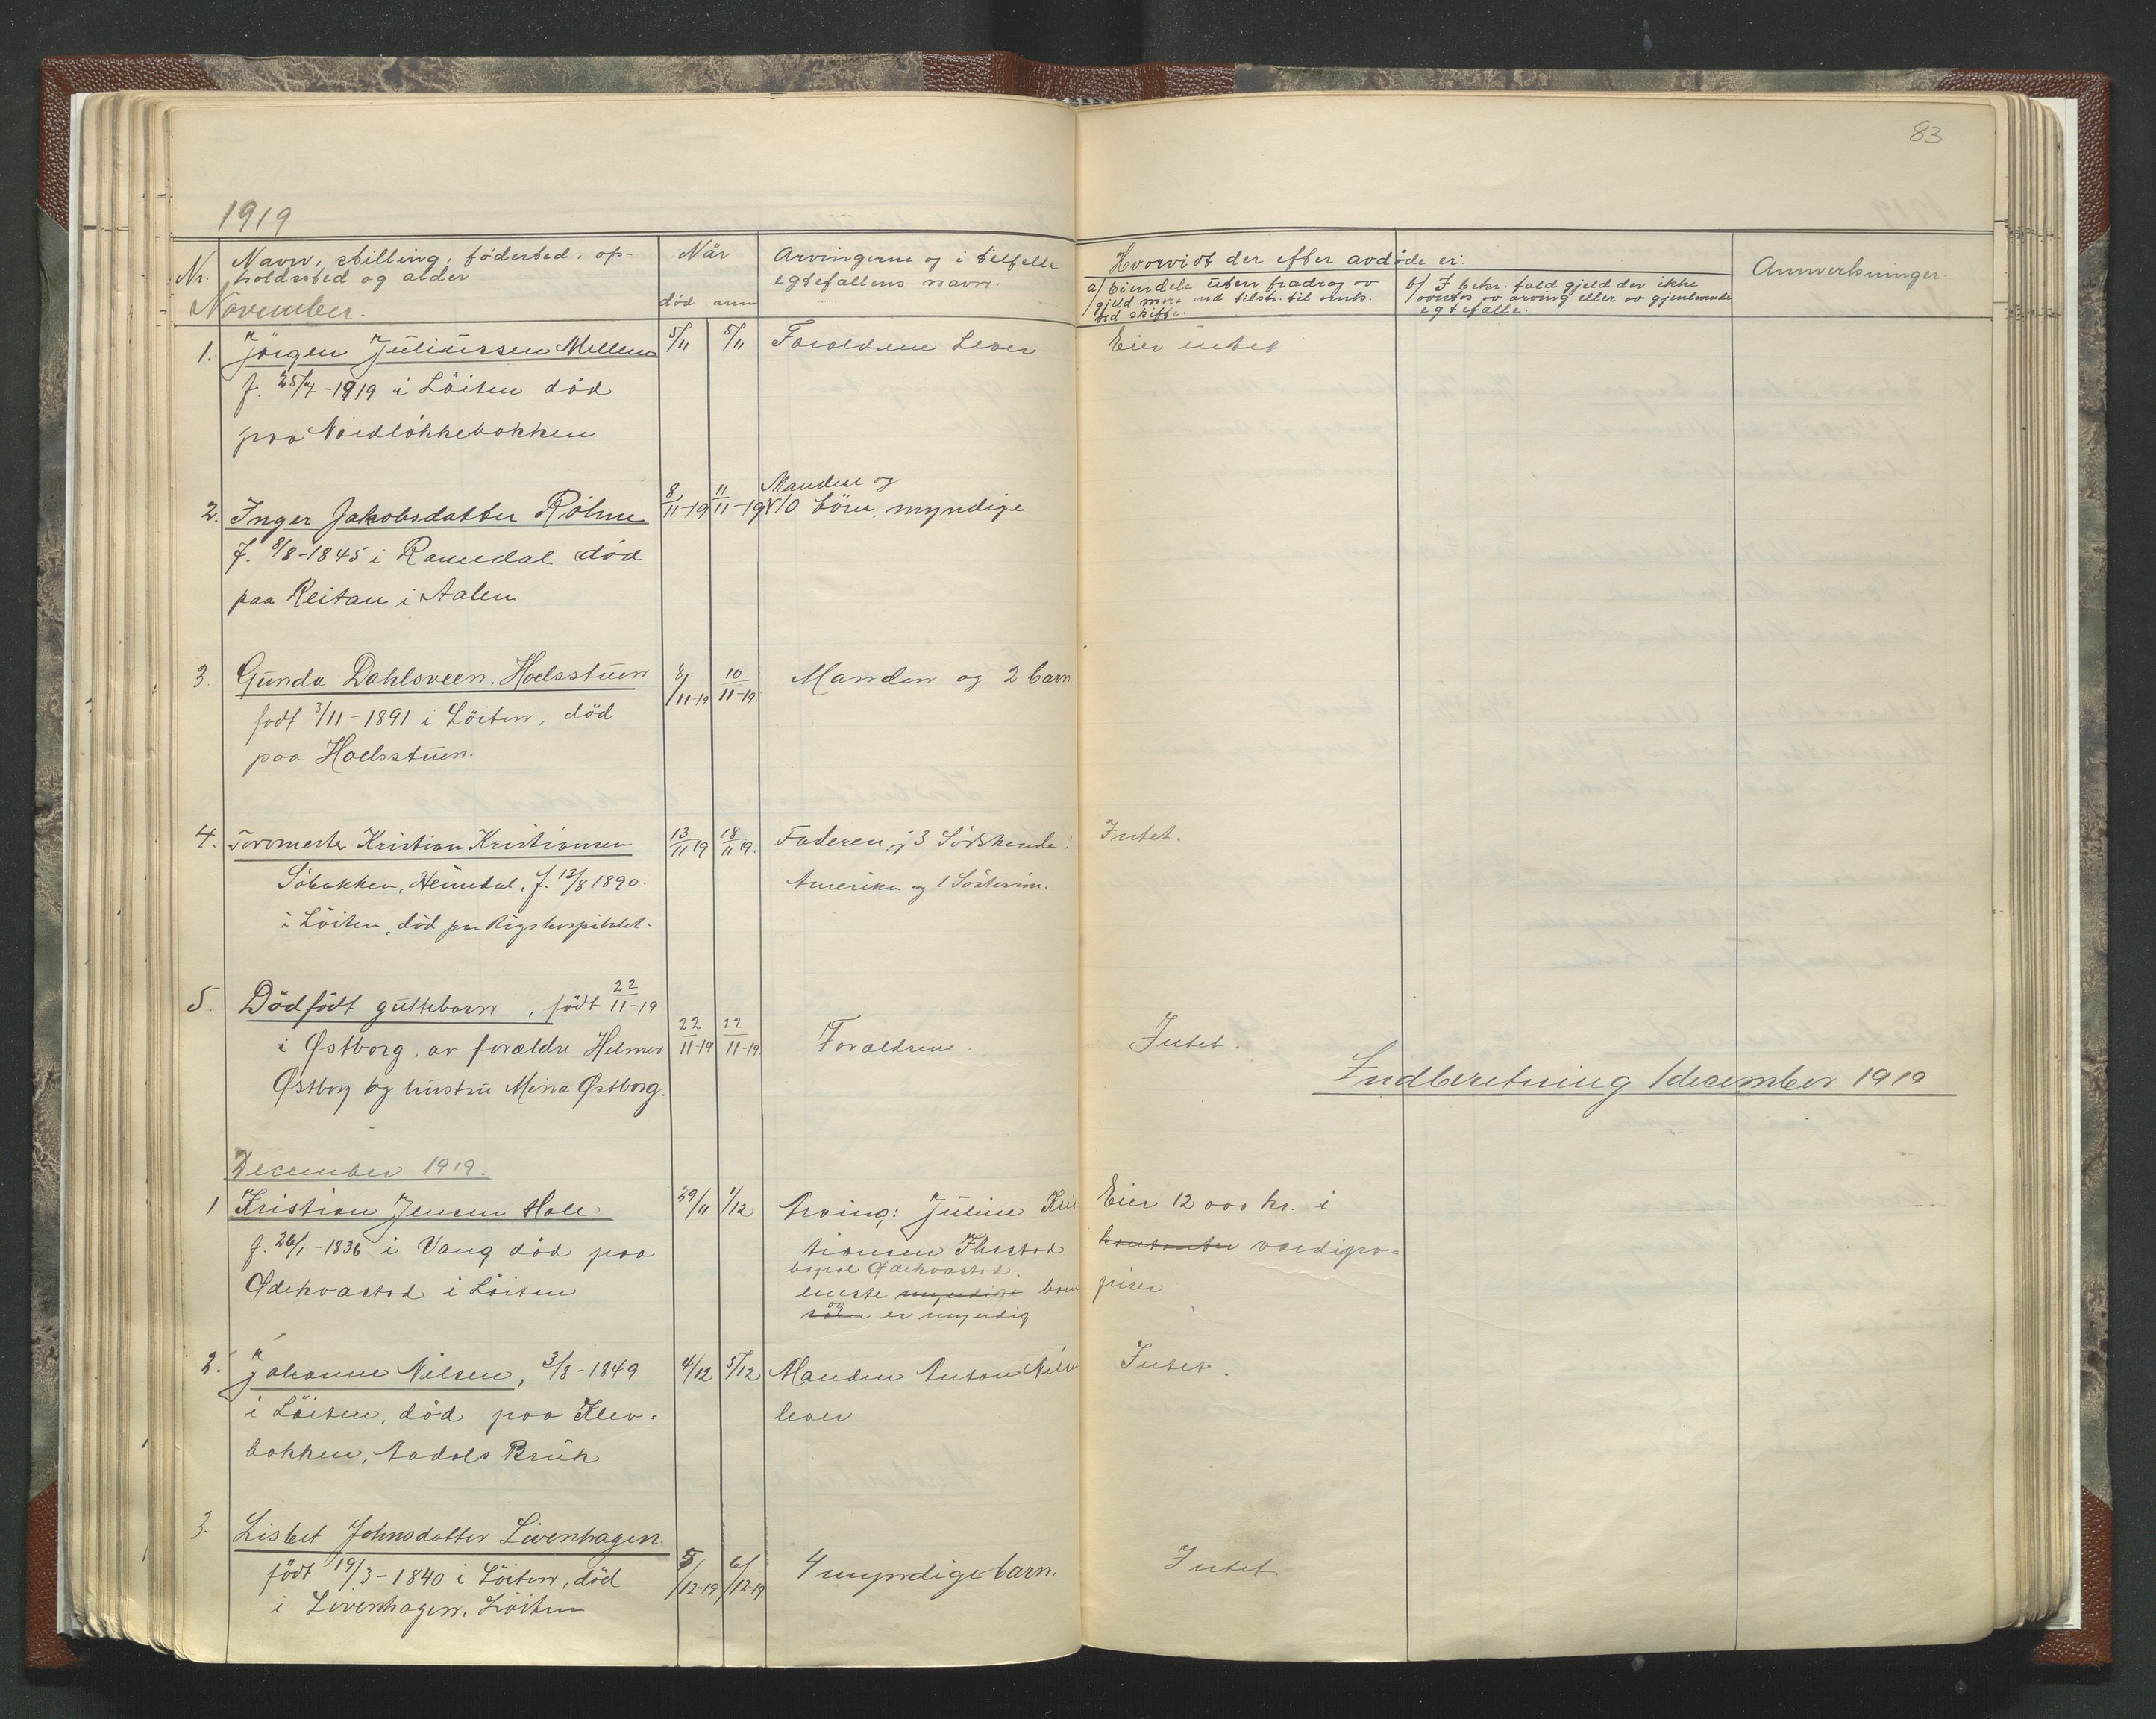 83
1919
Nr. Navn, stilling, födested, op-
holdssted og alder
Når
död anm
Arvingerne og i tilfelle
egtefellens navn.
Hvorvidt der efter avdöde er:
a/ Eiendele uten fradrag av
gjeld mere end tilstr. til omk.
ved skifte.
b/ I bekr. fald gjeld der ikke
overtas av arving eller av gjenlevende
egtefælle.
Anmerkninger.
November.
1. Jörgen Juliussen Mellem 5/11 5/11 Foreldrene Lever Eier intet
f. 25/7-1919 i Löiten död
paa Nordlökkebakken
2. Inger Jakobsdatter Röhne 8/11-19 11/11-19 Manden og
10 börn, myndige
f. 8/8-1845 i Romedal död
paa Reitan i Aalen
3. Gunda Dahlsveen, Hoelsstuen 8/11-19 10/11-19. Manden og 2 barn.
født 3/11-1891 i Löiten, död
paa Hoelsstuen.
4. Tormester Kristian Kristiansen 13/11 19 18/11 19. Faderen, 3 Södskende i Intet.
Söbakken, Heimdal, f. 13/8 1890. Amerika og 1 Söster
i Löiten, död paa Rigshospitalet.
5. Dödfödt guttebarn, födt 22/11-19
i Østborg, av forældre Helmer 22/11-19 22/11-19. Forældrene. Intet.
Østborg og hustru Mina Østborg.
Indberetning 1 december 1919
December 1919.
1 Kristian Jensen Hole 29/11 1/12 Arving: Juline Kris Eier 12 000 kr. i
f. 26/1-1836 i Vang död paa tiansen kontanter værdipa-
Ødekvastad i Löiten bopæl Ødekvastad.
eneste myndige barn pirer
som og er myndig
2. Johanne Nilsen, 3/8-1849 4/12 5/12 Manden Anton Nils Intet.
i Löiten, död paa Klev- lever
bakken, Aadals Bruk
3. Lisbet Johnsdatter Livenhagen.
födt 19/3-1840 i Löiten, död 5/12-19 6/12-19. 4 myndige barn. Intet
i Livenhagen, Löiten